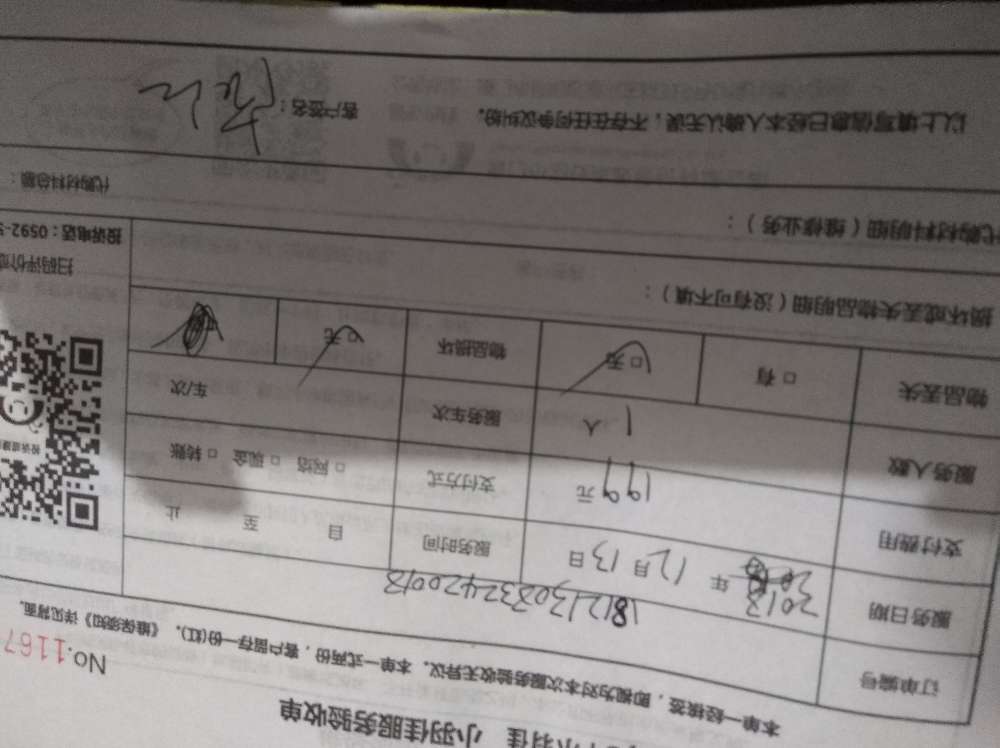 小羽佳 小羽佳服务验收单
No.1167
本单一经接签，即视为对本次服务验收无异议。本单一式两份，客户留存一份(红)。《维保须知》详见背面。
订单编号 181213083324420018
服务日期 2018 年 12 月 13 日 服务时间 自 至 止
支付费用 199 元 支付方式 □ 网络 □ 现金 □ 转账
服务人数 1 人 服务车次 车/次
物品丢失 □ 有 □ 无 物品损坏 □ 无
损坏或丢失物品明细（没有可不填）：
扫码评价或
投诉电话：0592-5
代购材料明细（维修业务）：
代购材料总额：
以上填写信息已经本人确认无误，不存在任何争议纠纷。 客户签名：